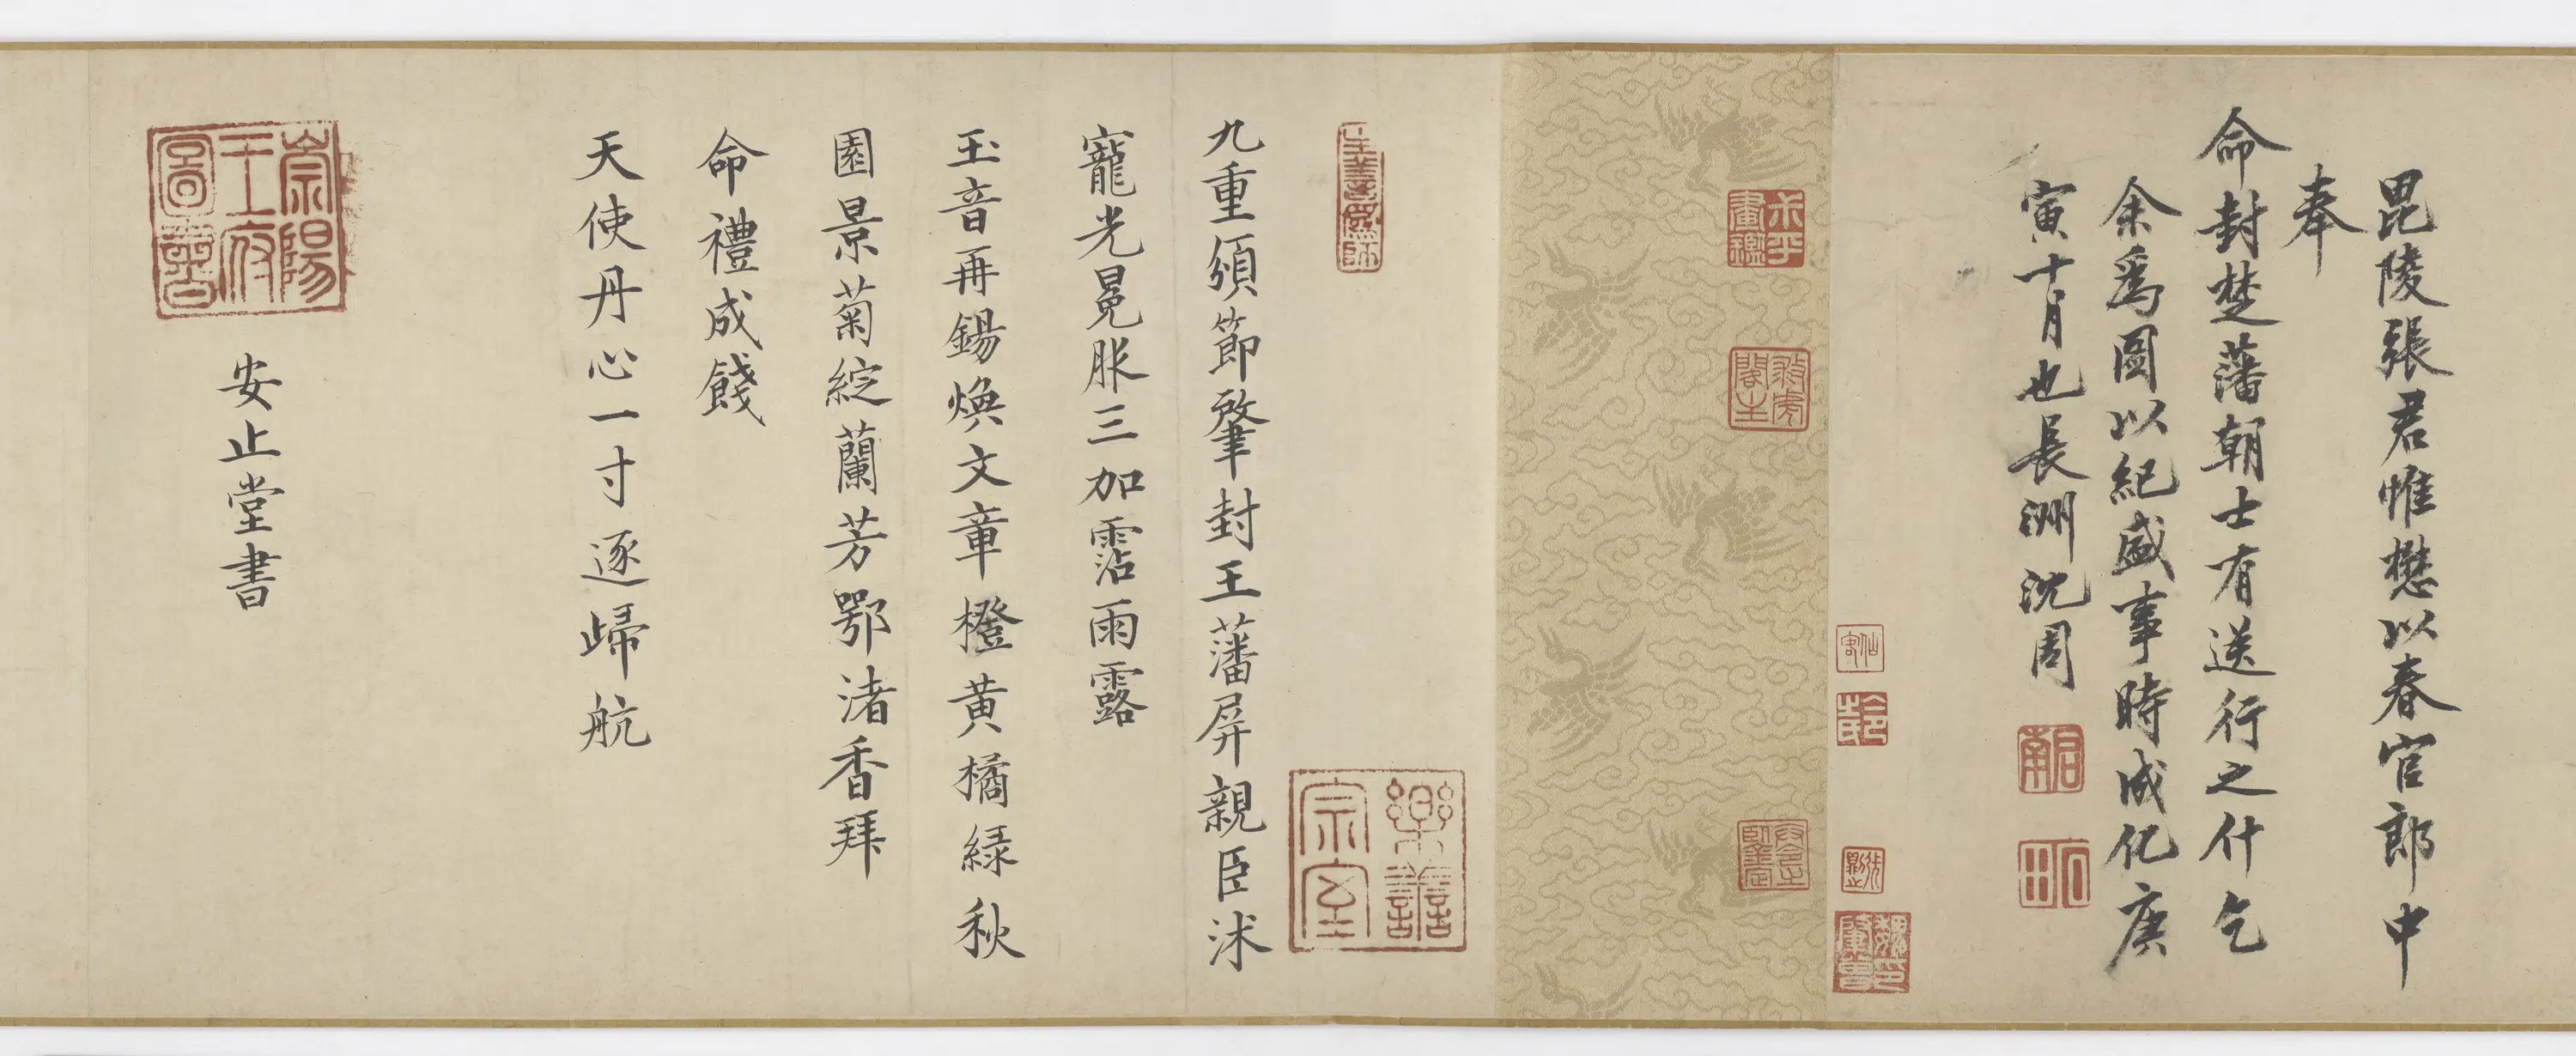 毘陵張君惟懋以春官郎中
奉
命封楚藩朝士有送行之什乞
余為圖以紀盛事時成化庚
寅十月也長洲沈周
啟南
石田
樂善
宗室
九重頒節肇封王藩屏親臣沭
寵光晃脹三加霑雨露
玉音再錫煥文章橙黃橘綠秋
園景菊綻蘭芳鄂渚香拜
命禮成餞
天使丹心一寸逐歸航
安止堂書
崇陽
王府
圖書